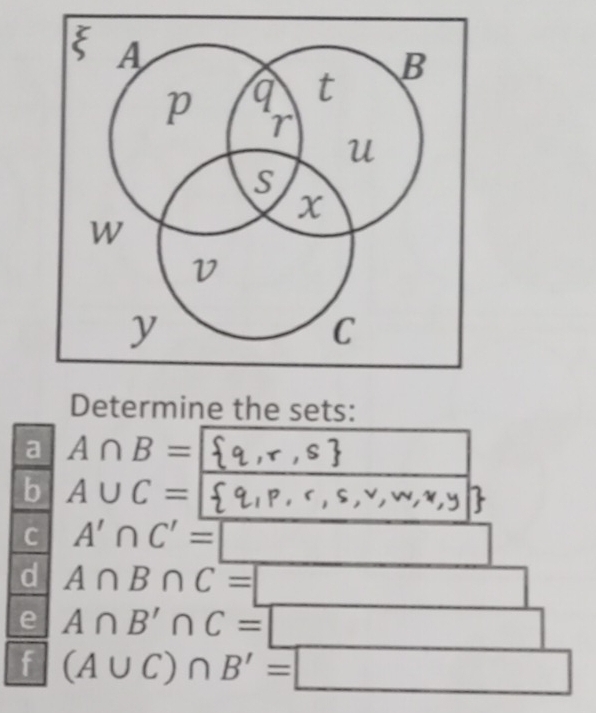 ξ A B
p q t
r u
s x
w v
y C
Determine the sets:
a A ∩ B = {q, r, s}
b A ∪ C = {q, p, r, s, v, w, x, y}
c A′ ∩ C′ =
d A ∩ B ∩ C =
e A ∩ B′ ∩ C =
f (A ∪ C) ∩ B′ =